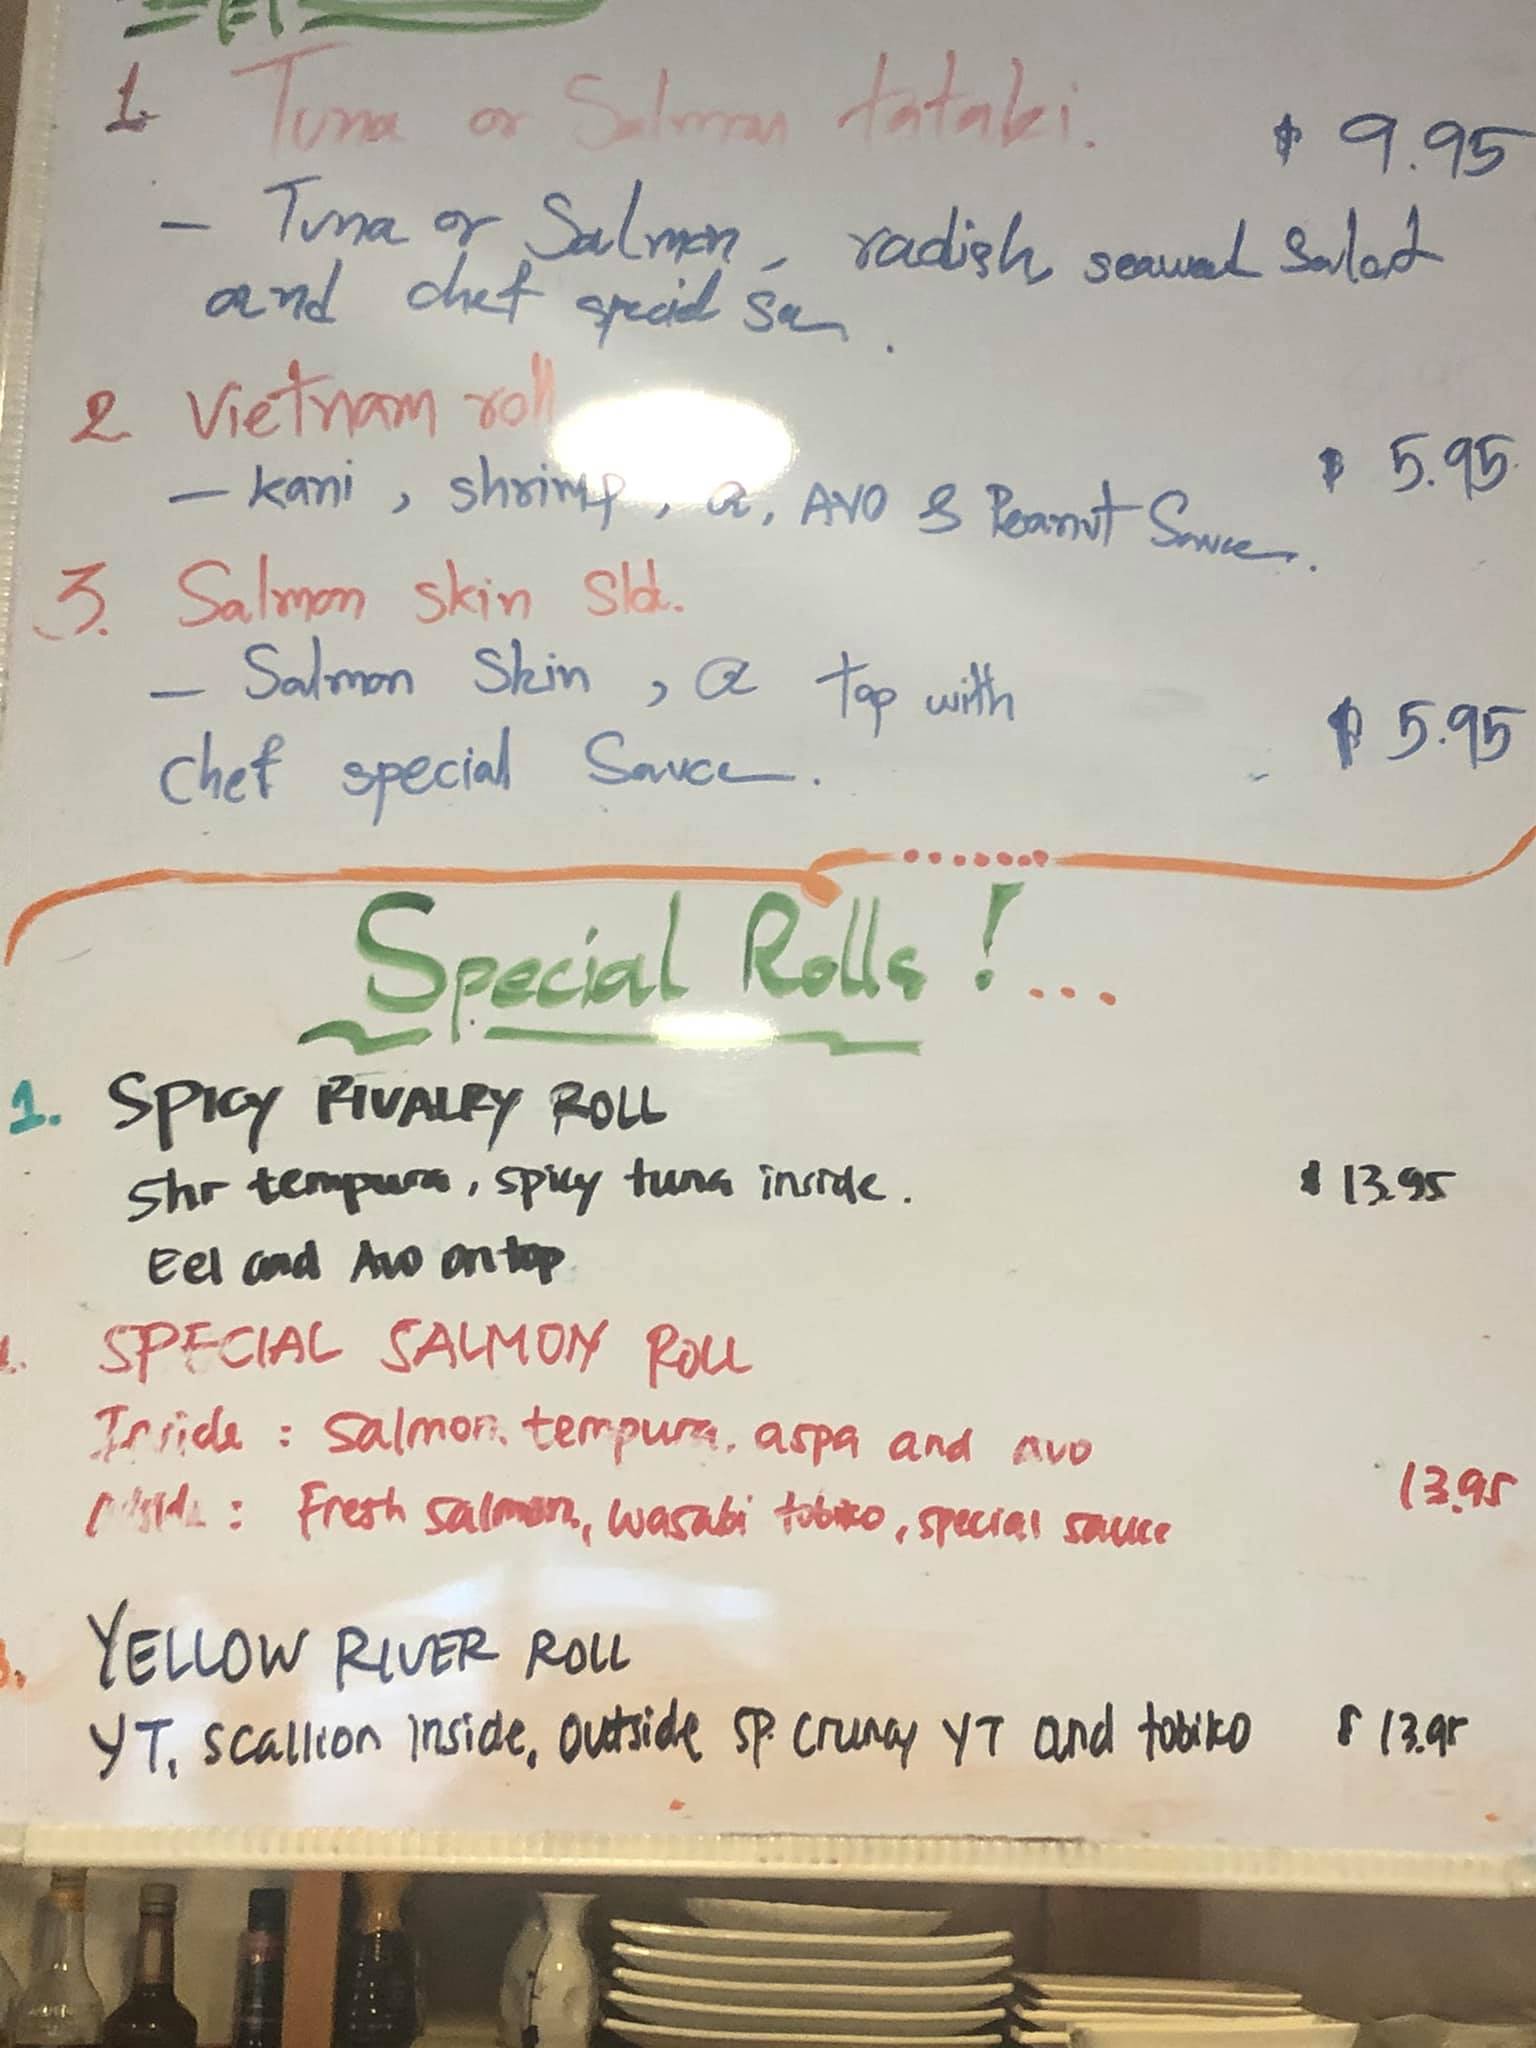 1. Tuna or Salmon tataki. $ 9.95
- Tuna or Salmon, radish, seaweed Salad
and chef special
2 Vietnam roll
- kani, shrimp, Q, AVO & Peanut Sauce. $ 5.95
3. Salmon skin Sld.
- Salmon Skin, Q top with
chef special Sauce. $ 5.95
Special Rolls!...
1. SPICY RIVALRY ROLL
Shr tempura, spicy tuna inside. $ 13.95
Eel and Avo on top
SPECIAL SALMON ROLL
Inside: Salmon tempura, aspa and avo
: Fresh salmon, wasabi tobiko, special sauce 13.95
3. YELLOW RIVER ROLL
YT, scallion inside, outside sp. crunchy YT and tobiko $ 13.95